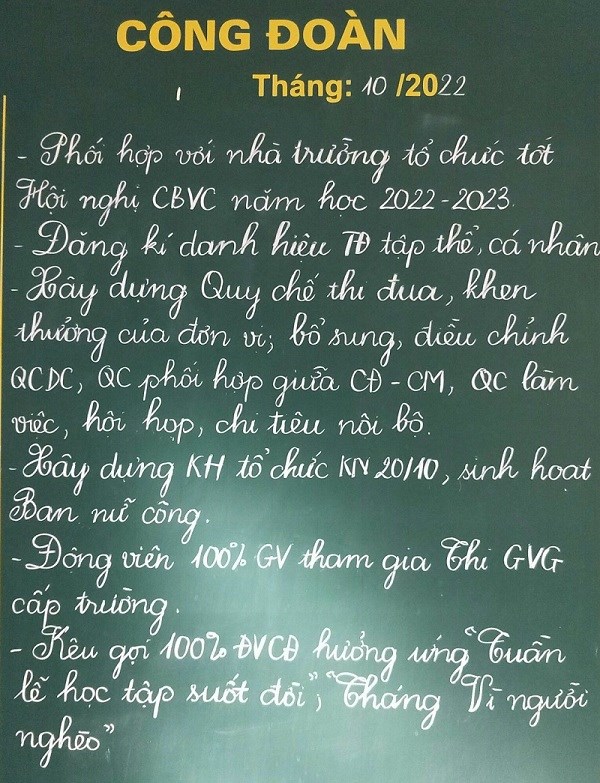 CÔNG ĐOÀN
Tháng: 10 /2022
- Phối hợp với nhà trường tổ chức tốt
Hội nghị CBVC năm học 2022-2023.
- Đăng kí danh hiệu TĐ tập thể, cá nhân
- Xây dựng Quy chế thi đua, khen
thưởng của đơn vị; bổ sung, điều chỉnh
QCDC, QC phối hợp giữa CĐ-CM, QC làm
việc, hội họp, chi tiêu nội bộ.
- Xây dựng KH tổ chức KN 20/10, sinh hoạt
Ban nữ công.
- Động viên 100% GV tham gia Thi GVG
cấp trường.
- Kêu gọi 100% ĐVCĐ hưởng ứng "Tuần
lễ học tập suốt đời"; "Tháng Vì người
nghèo"